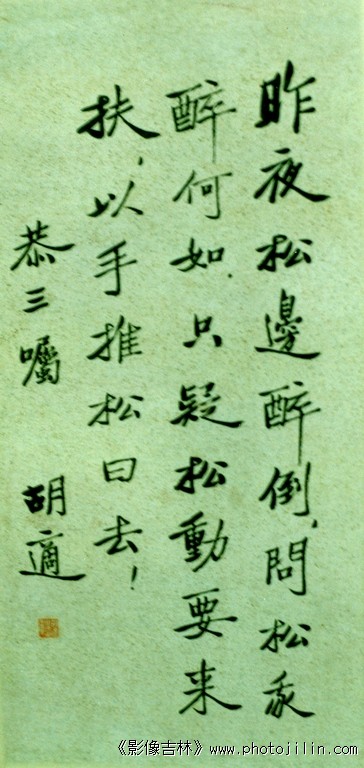 昨夜松邊醉倒，問松我
醉何如。只疑松動要来
扶，以手推松曰去！
恭三囑
胡適
《影像吉林》www.photojilin.com